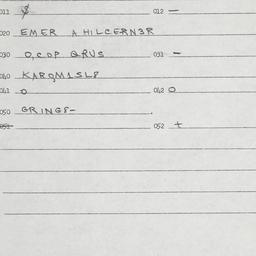 011 012 —
020 EMER A HILCERN3R
030 O,COP QRVS 031 —
040 KAROM1SL8
041 O 042 O
050 GRINGS-
051 052 +